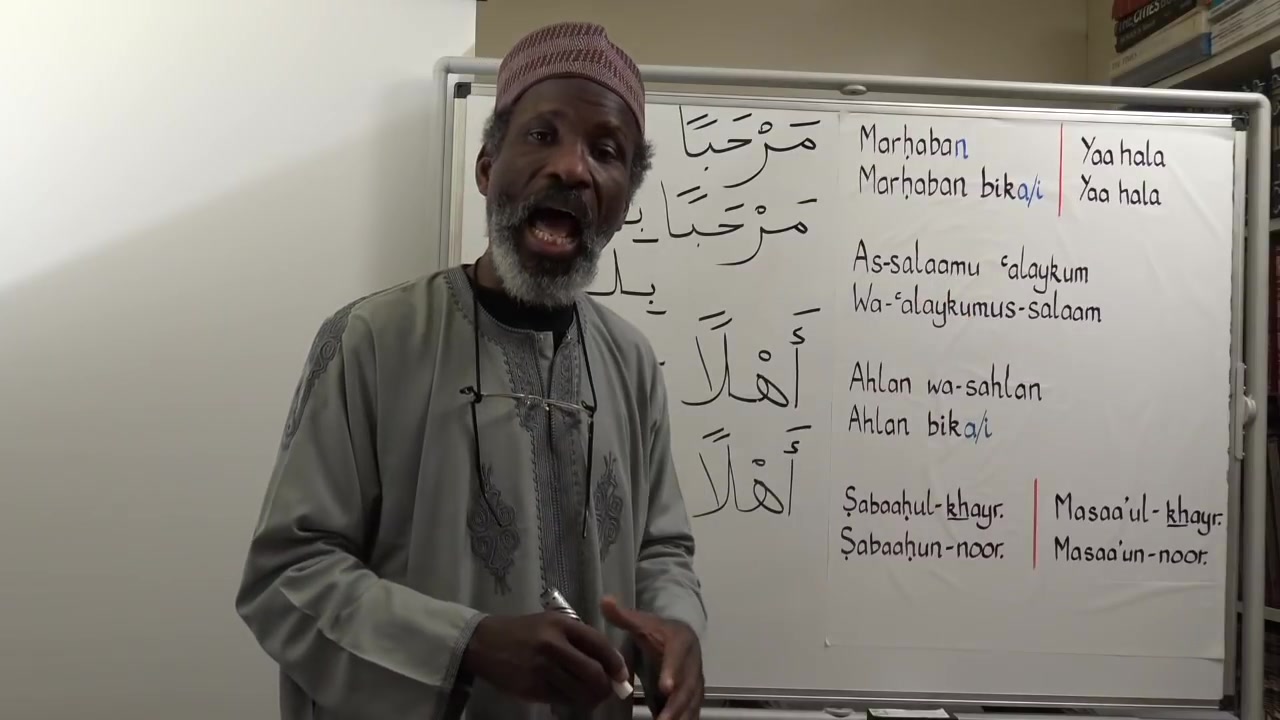 THE CITIES
مَرْحَبًا
مَرْحَبًا بِـ
بِكَ
أَهْلًا
أَهْلًا
Marḥaban
Marḥaban bika/i
Yaa hala
Yaa hala
As-salaamu ʿalaykum
Wa-ʿalaykumus-salaam
Ahlan wa-sahlan
Ahlan bika/i
Ṣabaaḥul-khayr.
Ṣabaaḥun-noor.
Masaa'ul-khayr.
Masaa'un-noor.